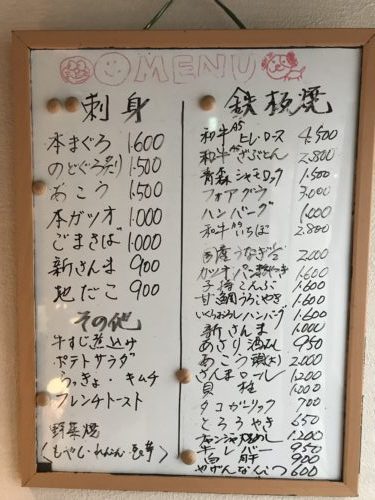 MENU
刺身
本まぐろ 1.600
のどぐろ炙り 1.500
あこう 1.500
本ガツオ 1.000
ごまさば 1.000
新さんま 900
地だこ 900
その他
牛すじ煮込み
ポテトサラダ
らっきょ・キムチ
フレンチトースト
野菜焼
(もやし・れんこん・
鉄板焼
和牛A5ヒレ・ロース 4.500
和牛A5ざぶとん 2.800
青森シャモロック 1.500
フォアグラ 3.000
ハンバーグ 1.000
和牛A5いちぼ 2.800
国産うなぎ 2.000
カツオパン粉やき 1.600
子持こんぶ 1.600
甘鯛うろこやき 1.600
いくらおろしハンバーグ 1.600
新さんま 1.000
あさり酒むし 950
あこう 2.000
さんまロール 1.200
貝柱 1.000
タコガーリック 700
とろろやき 650
チャンジャ焼めし 1.200
牛レバー 950
900
やげんなんこつ 600